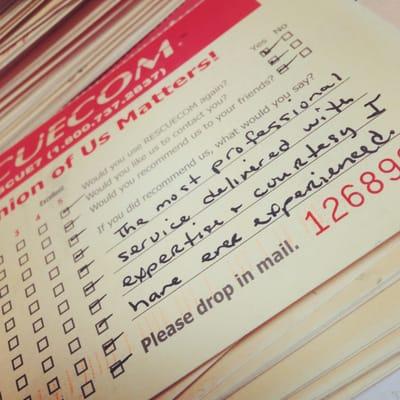 CUECOM.
SCUE7 (1.800.737.2837)
nion of Us Matters!
Yes No
Would you use RESCUECOM again?
Would you like us to contact you?
Would you recommend us to your friends?
If you did recommend us, what would you say?
The most professional
service delivered with
expertise + courtesy I
have ever experienced.
Excellent
3 4 5
Please drop in mail.
12689